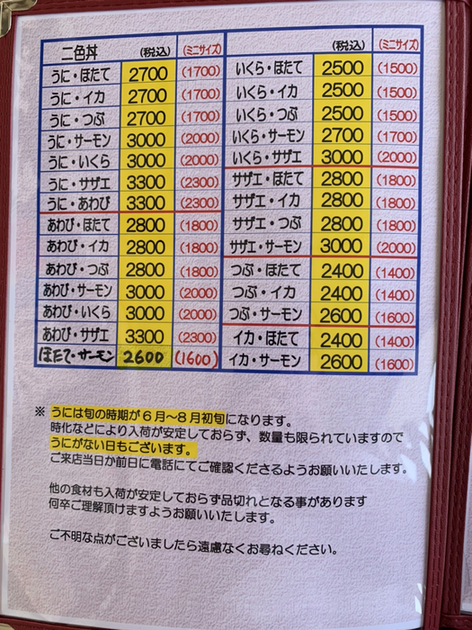 二色丼 (税込) (ミニサイズ)
うに・ほたて 2700 (1700)
うに・イカ 2700 (1700)
うに・つぶ 2700 (1700)
うに・サーモン 3000 (2000)
うに・いくら 3000 (2000)
うに・サザエ 3300 (2300)
うに・あわび 3300 (2300)
あわび・ほたて 2800 (1800)
あわび・イカ 2800 (1800)
あわび・つぶ 2800 (1800)
あわび・サーモン 3000 (2000)
あわび・いくら 3000 (2000)
あわび・サザエ 3300 (2300)
ほたて・サーモン 2600 (1600)
(税込) (ミニサイズ)
いくら・ほたて 2500 (1500)
いくら・イカ 2500 (1500)
いくら・つぶ 2500 (1500)
いくら・サーモン 2700 (1700)
いくら・サザエ 3000 (2000)
サザエ・ほたて 2800 (1800)
サザエ・イカ 2800 (1800)
サザエ・つぶ 2800 (1800)
サザエ・サーモン 3000 (2000)
つぶ・ほたて 2400 (1400)
つぶ・イカ 2400 (1400)
つぶ・サーモン 2600 (1600)
イカ・ほたて 2400 (1400)
イカ・サーモン 2600 (1600)
※ うには旬の時期が6月~8月初旬になります。
時化などにより入荷が安定しておらず、数量も限られていますので
うにがない日もございます。
ご来店当日か前日に電話にてご確認くださるようお願いいたします。
他の食材も入荷が安定しておらず品切れとなる事があります
何卒ご理解頂けますようお願いいたします。
ご不明な点がございましたら遠慮なくお尋ねください。